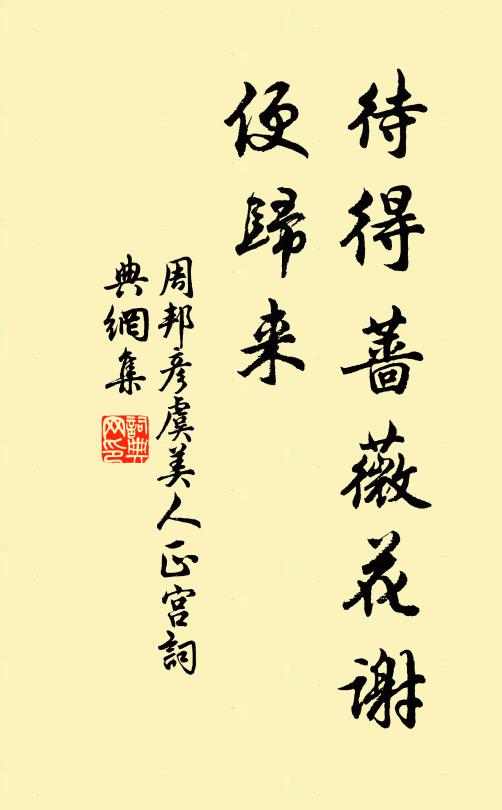 待得蔷薇花谢
便歸来
周邦彦虞美人正宫詞
典網集
詞典
网印